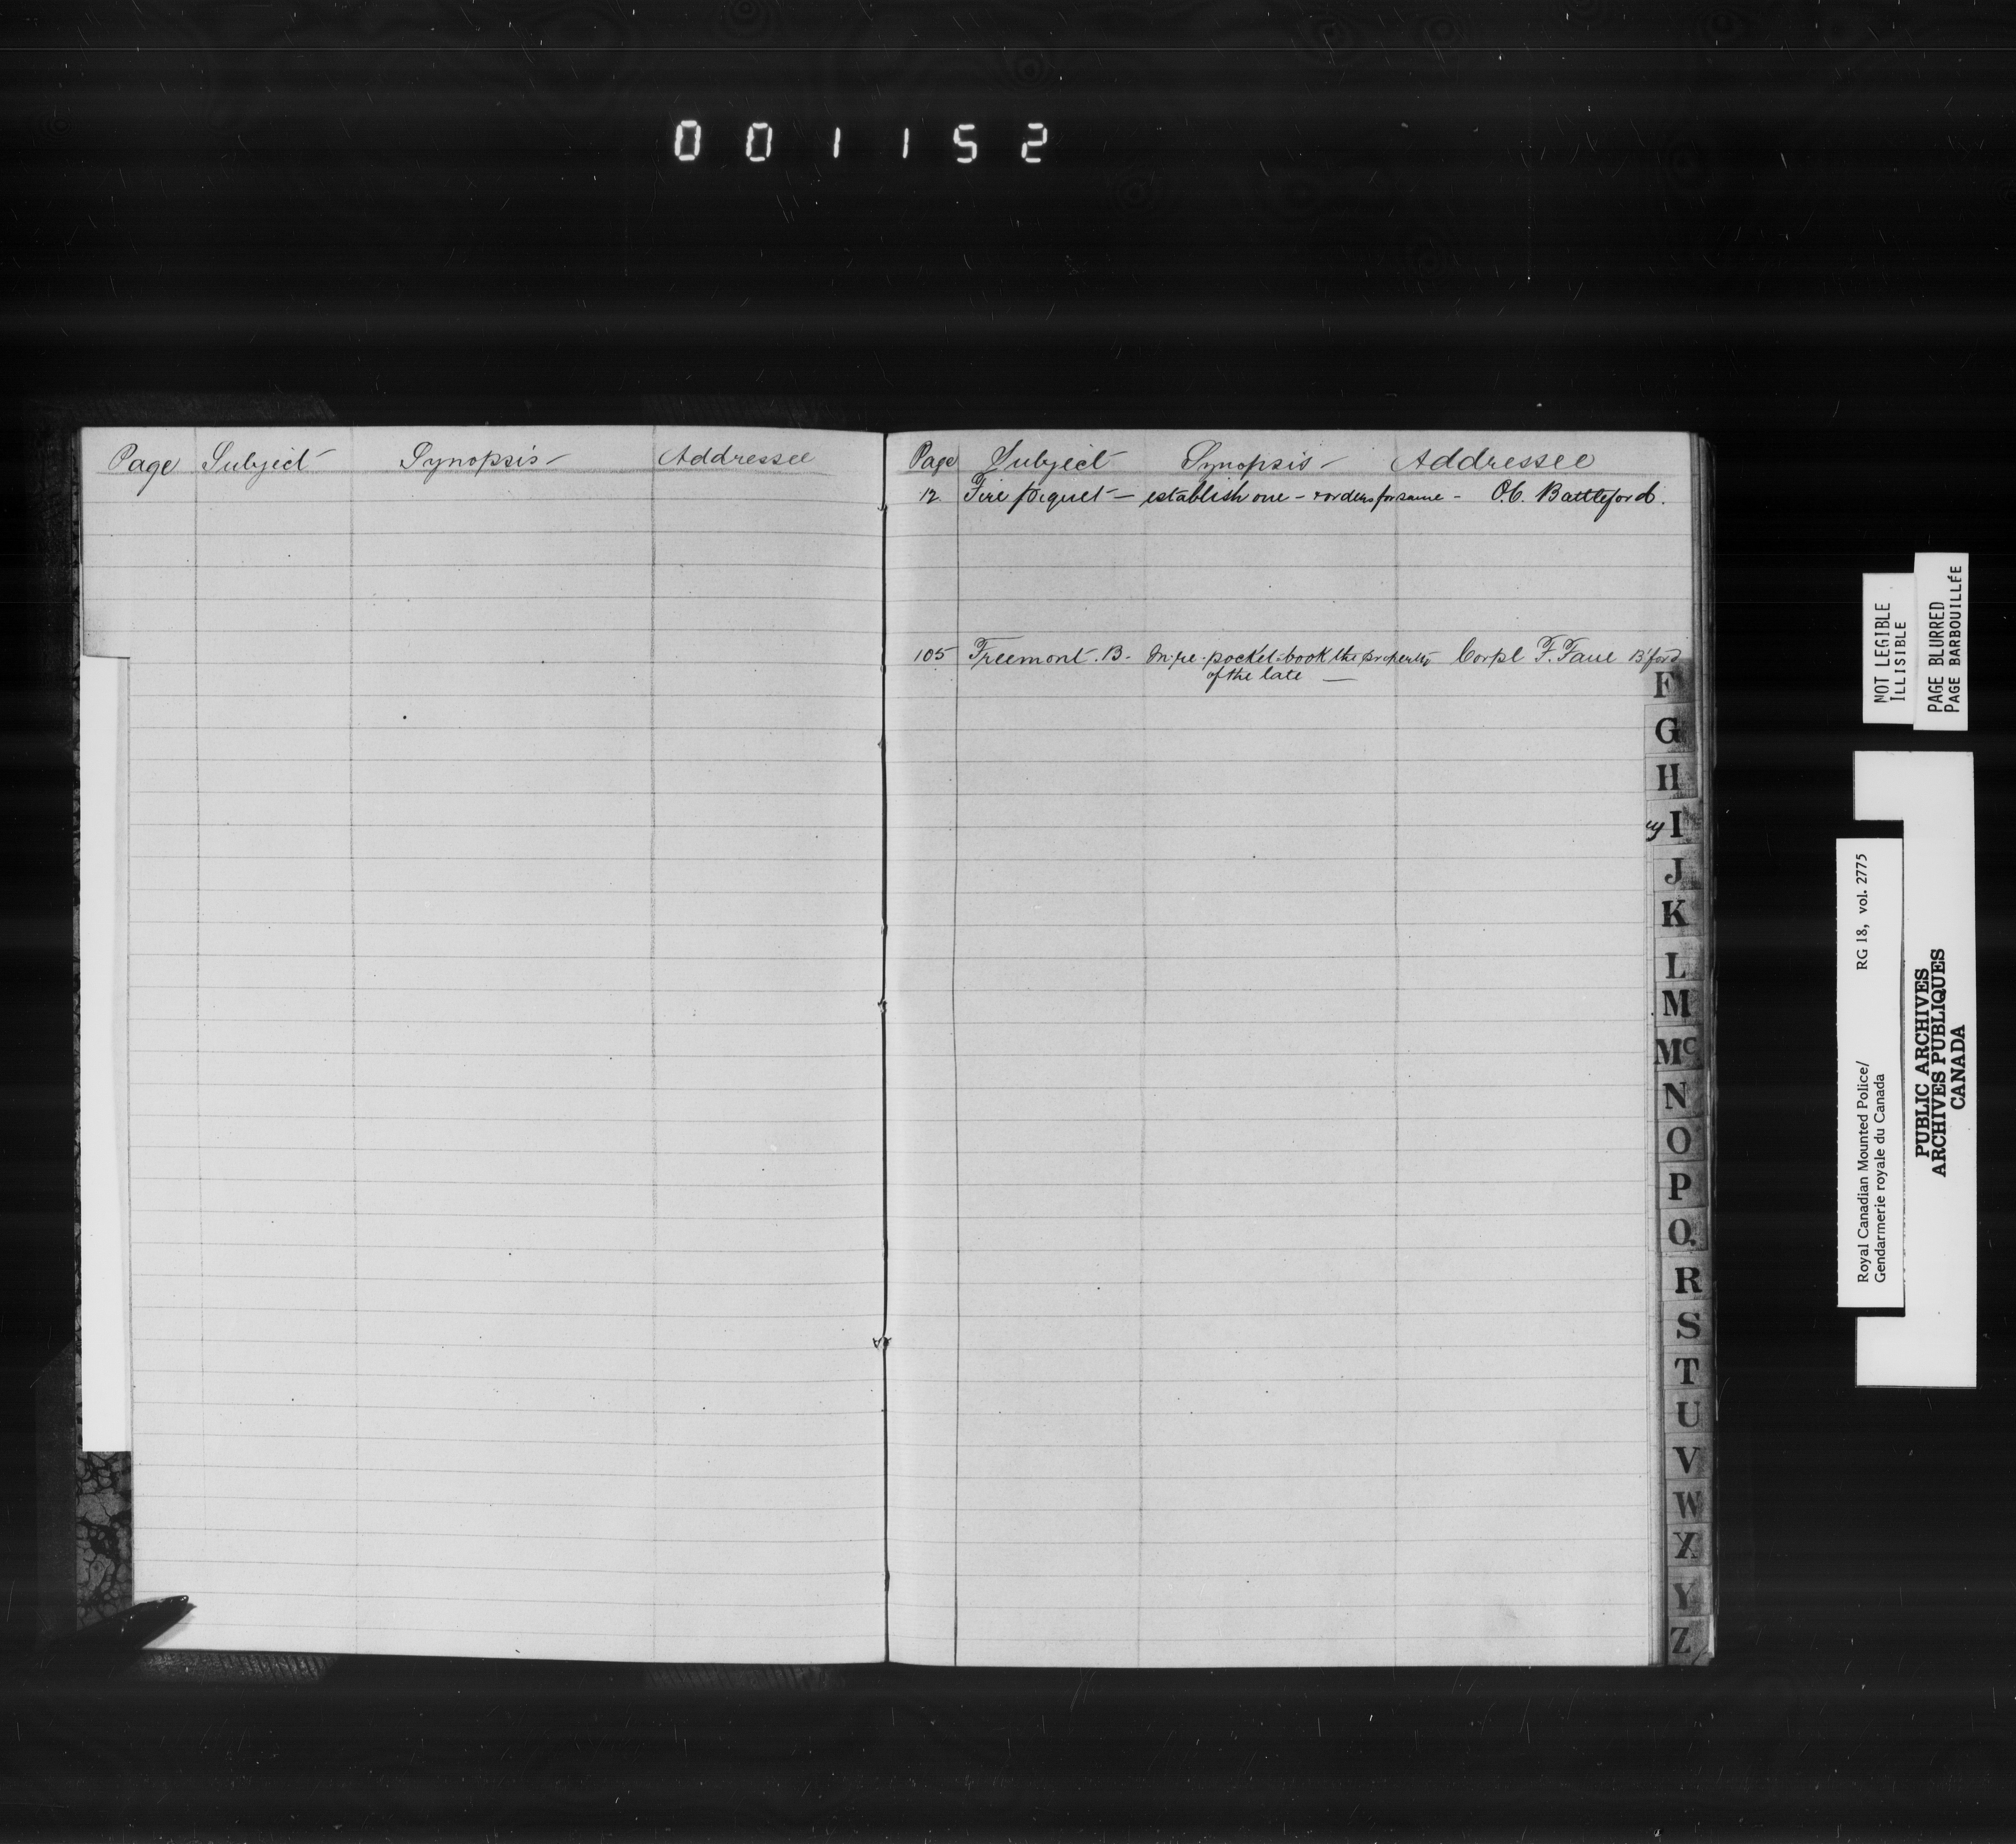 001152
Page Subject Synopsis Addressee
Page Subject Synopsis Addressee
12. Fire picquet — establish one — & orders for same — O.C. Battleford.
105 Freemont. B. In re. pocket-book the property Corpl F. Fane B'ford
of the late —
F
G
H
y I
J
K
L
M
Mc
N
O
P
Q
R
S
T
U
V
W
X
Y
Z
NOT LEGIBLE
ILLISIBLE
PAGE BLURRED
PAGE BARBOUILLÉE
Royal Canadian Mounted Police/ RG 18, vol. 2775
Gendarmerie royale du Canada
PUBLIC ARCHIVES
ARCHIVES PUBLIQUES
CANADA